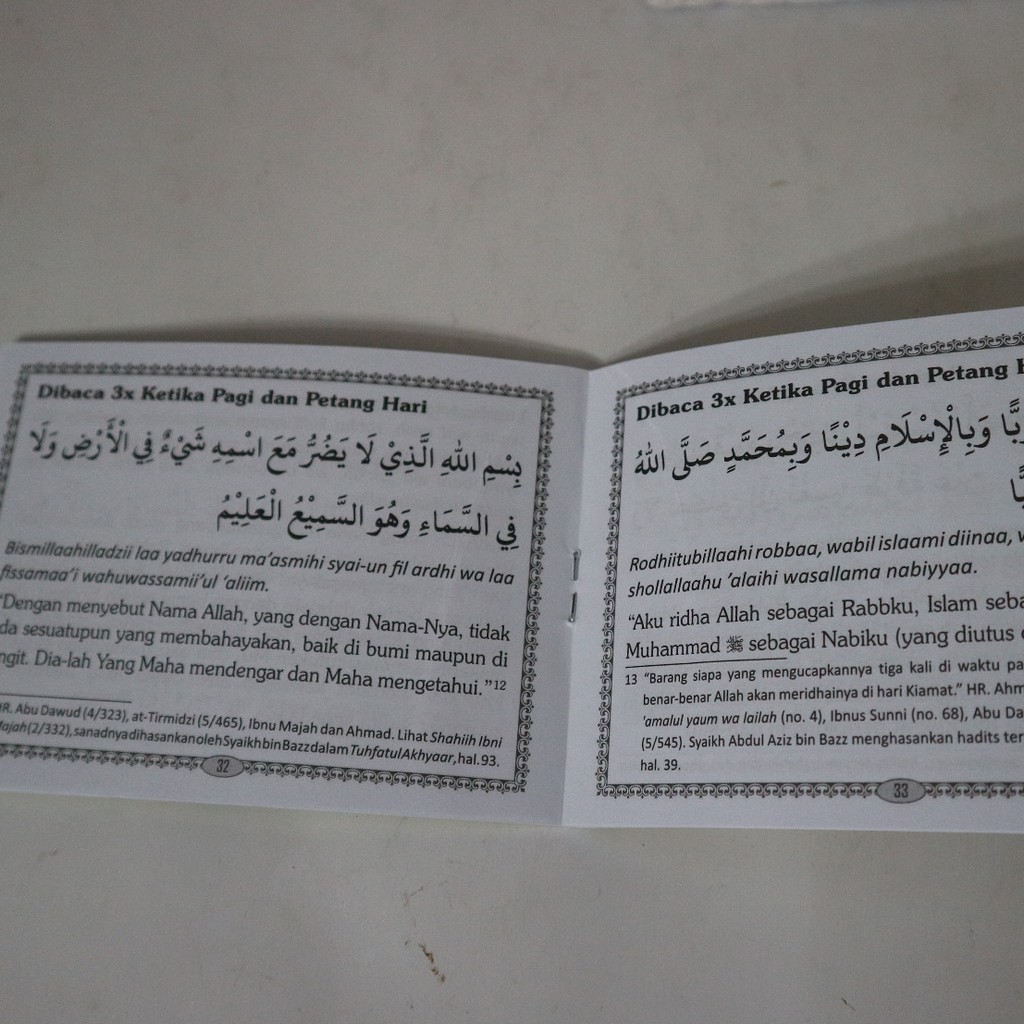 Dibaca 3x Ketika Pagi dan Petang Hari
بِسْمِ اللهِ الَّذِيْ لَا يَضُرُّ مَعَ اسْمِهِ شَيْءٌ فِي الْأَرْضِ وَلَا
فِي السَّمَاءِ وَهُوَ السَّمِيْعُ الْعَلِيْمُ
Bismillaahilladzii laa yadhurru ma'asmihi syai-un fil ardhi wa laa
fissamaa'i wahuwassamii'ul 'aliim.
"Dengan menyebut Nama Allah, yang dengan Nama-Nya, tidak
sesuatupun yang membahayakan, baik di bumi maupun di
Dia-lah Yang Maha mendengar dan Maha mengetahui."12
HR. Abu Dawud (4/323), at-Tirmidzi (5/465), Ibnu Majah dan Ahmad. Lihat Shahiih Ibni
Majah (2/332), sanadnya dihasankan oleh Syaikh bin Bazz dalam Tuhfatul Akhyaar, hal. 93.
32
Dibaca 3x Ketika Pagi dan Petang
وَبِالْإِسْلَامِ دِيْنًا وَبِمُحَمَّدٍ صَلَّى اللهُ
Rodhiitubillaahi robbaa, wabil islaami diinaa,
shollallaahu 'alaihi wasallama nabiyyaa.
"Aku ridha Allah sebagai Rabbku, Islam
Muhammad ﷺ sebagai Nabiku (yang diutus
13 "Barang siapa yang mengucapkannya tiga kali di waktu
benar-benar Allah akan meridhainya di hari Kiamat." HR.
'amalul yaum wa lailah (no. 4), Ibnus Sunni (no. 68), Abu
(5/545). Syaikh Abdul Aziz bin Bazz menghasankan hadits
hal. 39.
33